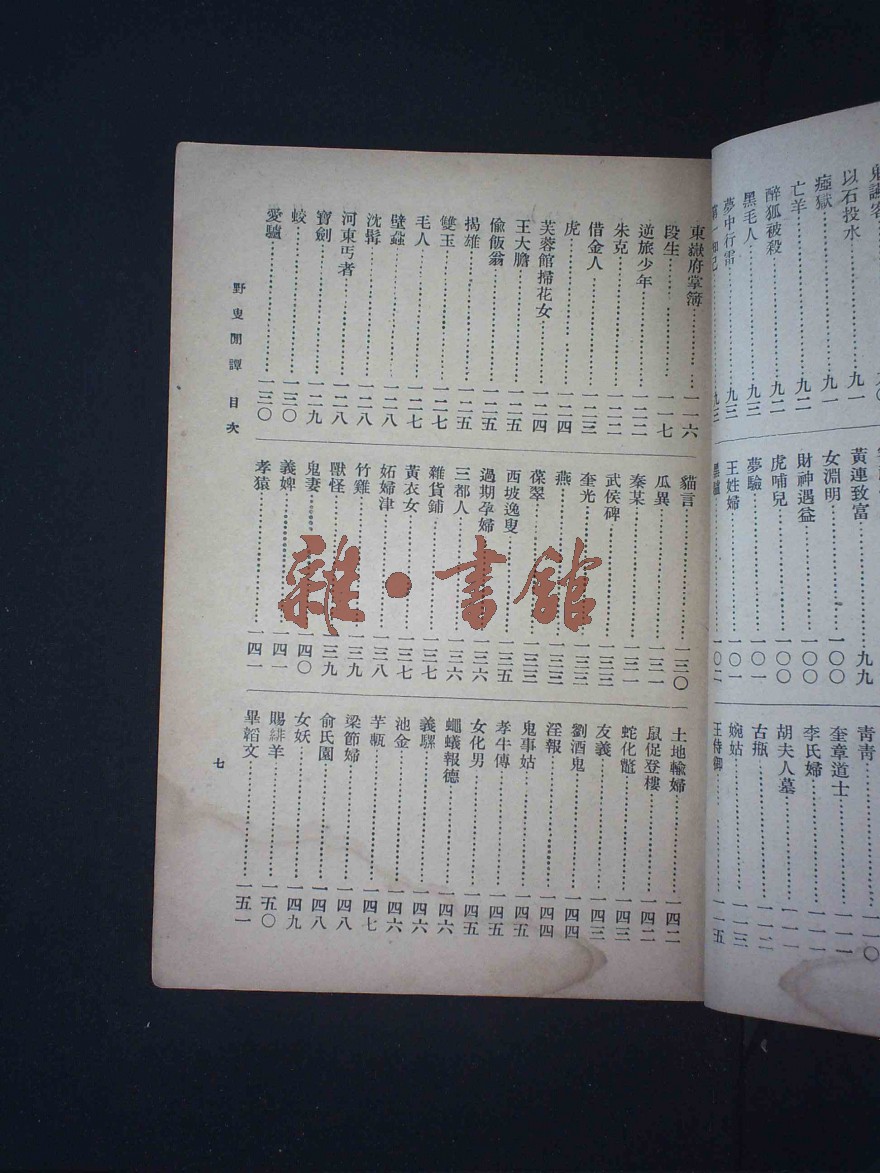 以石投水……九一
瘞獄……九一
亡羊……九二
醉狐被殺……九二
黑毛人……九三
夢中行雷……九三
黃連致富……九九
女淵明……一〇〇
財神遇益……一〇〇
虎哺兒……一〇〇
夢驗……一〇一
王姓婦……一〇一
青青……一一〇
奎章道士……一一一
李氏婦……一一一
胡夫人墓……一一一
古瓶……一一二
婉姑……一一三
王侍御……一一五
東嶽府掌簿……一一六
段生……一一七
逆旅少年……一二二
朱克……一二二
借金人……一二三
虎……一二四
芙蓉館掃花女……一二四
王大膽……一二五
偷飯翁……一二五
揭雄……一二五
雙玉……一二七
毛人……一二七
壁蝨……一二八
沈髯……一二八
河東丐者……一二八
寶劍……一二九
蛟……一三〇
愛驢……一三〇
貓言……一三〇
瓜異……一三一
秦某……一三一
武侯碑……一三三
奎光……一三三
燕……一三三
葆翠……一三三
西坡逸叟……一三五
過期孕婦……一三六
三都人……一三六
雜貨鋪……一三七
黃衣女……一三七
妬婦津……一三八
竹雞……一三九
獸怪……一三九
鬼妻……一四〇
義婢……一四一
孝猿……一四一
土地輸婦……一四二
鼠促登樓……一四二
蛇化鼈……一四三
友義……一四三
劉酒鬼……一四四
淫報……一四四
鬼事姑……一四五
孝牛傳……一四五
女化男……一四五
蠅蟻報德……一四六
義騾……一四六
池金……一四六
芋甎……一四七
梁節婦……一四八
俞氏園……一四八
女妖……一四九
賜緋羊……一五〇
畢韜文……一五一
野叟閒譚 目次
七
雜·書館